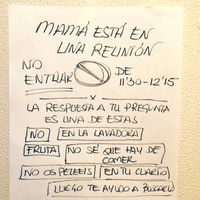 MAMÁ ESTÁ EN
UNA REUNIÓN
NO ENTRAR DE 11'30-12'15
x
LA RESPUESTA A TU PREGUNTA
ES UNA DE ESTAS:
NO EN LA LAVADORA
FRUTA NO SÉ QUE HAY DE COMER
NO OS PELEEIS EN TU CUARTO
LUEGO TE AYUDO A BUSCARLO